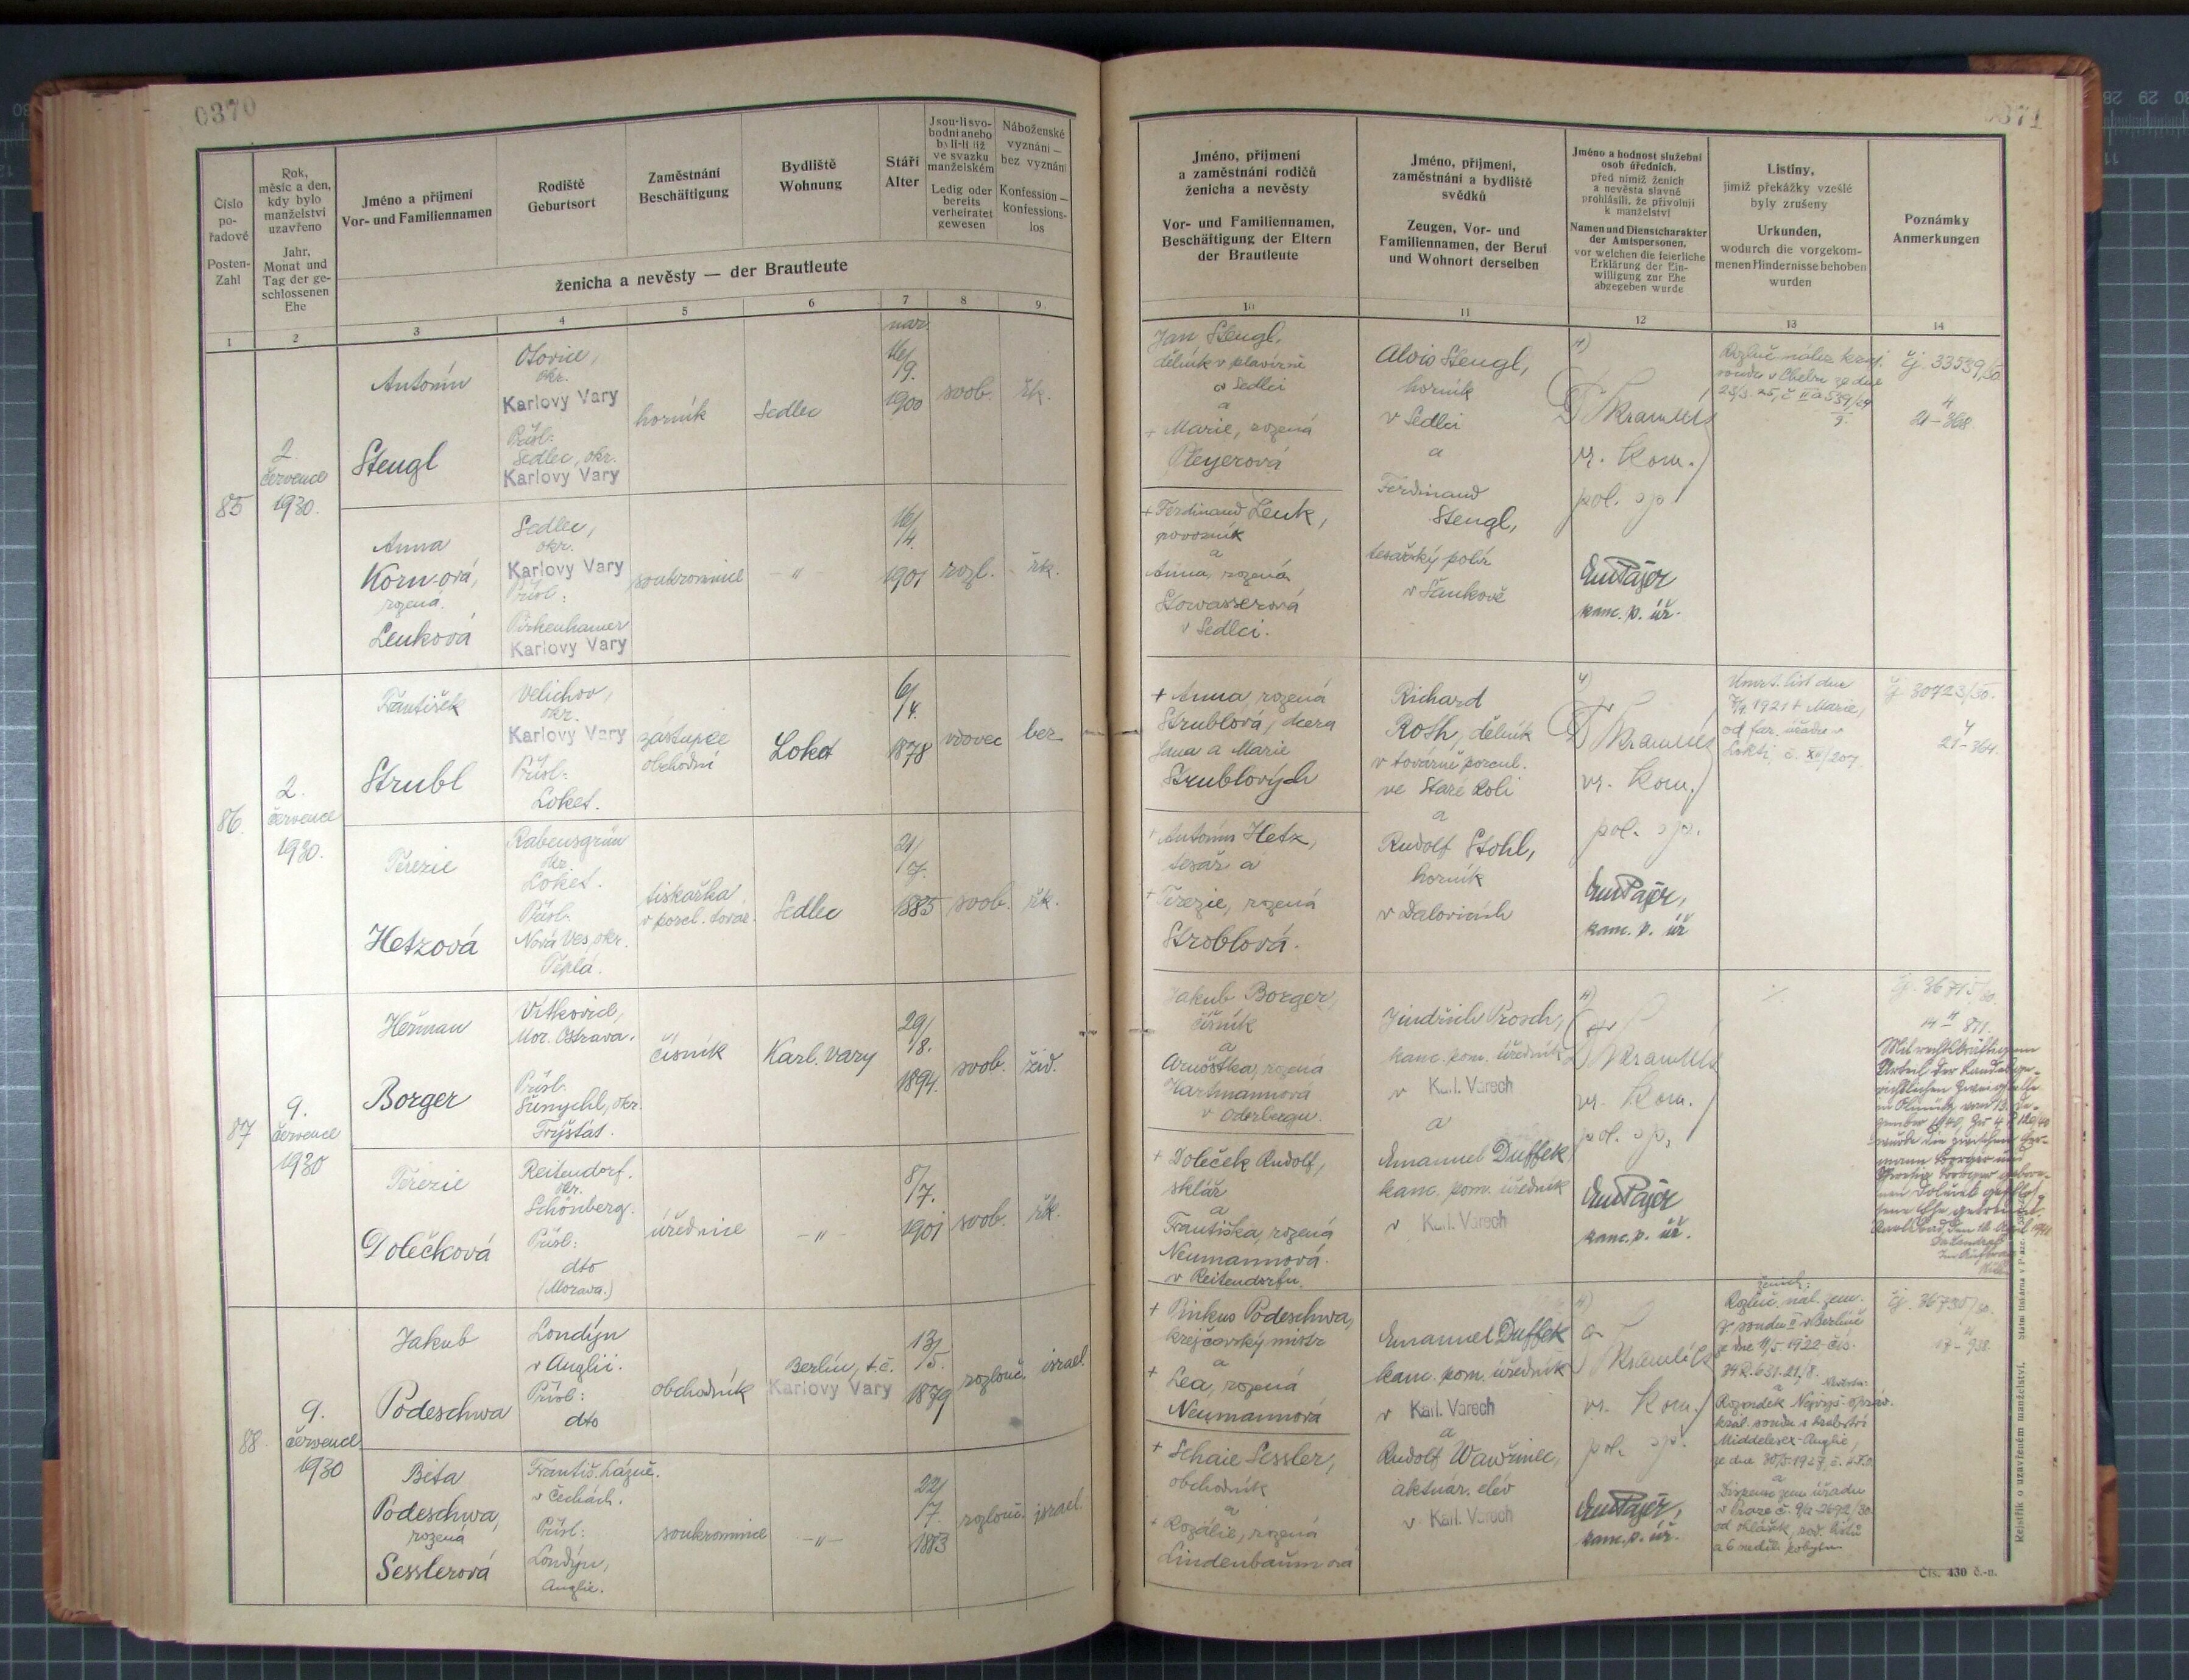 0370
Číslo
po-
řadové
Posten-
Zahl
Rok,
měsíc a den,
kdy bylo
manželství
uzavřeno
Jahr,
Monat und
Tag der ge-
schlossenen
Ehe
Jméno a příjmení
Vor- und Familiennamen
Rodiště
Geburtsort
Zaměstnání
Beschäftigung
Bydliště
Wohnung
Stáří
Alter
Jsou-li svo-
bodni anebo
byli-li již
ve svazku
manželském
Ledig oder
bereits
verheiratet
gewesen
Náboženské
vyznání —
bez vyznání
Konfession —
konfessions-
los
ženicha a nevěsty — der Brautleute
1
2
3
4
5
6
7
8
9
85
2.
července
1930.
Antonín
Stengl
Otovice,
okr.
Karlovy Vary
Přísl.
Sedlec, okr.
Karlovy Vary
horník
Sedlec
nar.
16/
9.
1900
svob.
řk.
Anna
Korn-ová,
rozená
Lenková
Sedlec,
okr.
Karlovy Vary
Přísl:
Pirkenhamer
Karlovy Vary
soukromnice
— " —
16/
4.
1901
rozl.
řk.
86.
2.
července
1930.
František
Strubl
Velichov,
okr.
Karlovy Vary
Přísl:
Loket.
zástupce
obchodní
Loket
6/
4.
1878
vdovec
bez
Terezie
Hetzová
Rabensgrün
okr.
Loket.
Přísl.
Nová Ves, okr.
Teplá.
tiskařka
v porcel. továr.
Sedlec
21/
7.
1885
svob.
řk.
87
9.
července
1930
Heřman
Borger
Vítkovice,
Mor. Ostrava.
Přísl.
Šunychl, okr.
Fryštát.
číšník
Karl. Vary
29/
8.
1894.
svob.
žid.
Terezie
Dolečková
Reitendorf.
okr.
Schönberg.
Přísl:
dto
(Morava.)
úřednice
— " —
8/
7.
1901
svob.
řk.
88
9.
července
1930
Jakub
Podeschwa
Londýn
v Anglii.
Přísl:
dto
obchodník
Berlín, t. č.
Karlovy Vary
13/
5.
1879
rozlouč.
israel.
Béta
Podeschwa,
rozená
Sesslerová
Františ. Lázně.
v Čechách.
Přísl:
Londýn,
Anglie.
soukromnice
— " —
22/
7.
1883
rozlouč.
israel.
0371
Jméno, příjmení
a zaměstnání rodičů
ženicha a nevěsty
Vor- und Familiennamen,
Beschäftigung der Eltern
der Brautleute
Jméno, příjmení,
zaměstnání a bydliště
svědků
Zeugen, Vor- und
Familiennamen, der Beruf
und Wohnort derselben
Jméno a hodnost služební
osob úředních,
před nimiž ženich
a nevěsta slavně
prohlásili, že přivolují
k manželství
Namen und Dienstcharakter
der Amtspersonen,
vor welchen die feierliche
Erklärung der Ein-
willigung zur Ehe
abgegeben wurde
Listiny,
jimiž překážky vzešlé
byly zrušeny
Urkunden,
wodurch die vorgekom-
menen Hindernisse behoben
wurden
Poznámky
Anmerkungen
10
11
12
13
14
Jan Stengl,
dělník v plavírně
v Sedlci
a
+ Marie, rozená
Pleyerová
Alois Stengl,
horník
v Sedlci
a
Ferdinand
Stengl,
tesařský polír
v Šankově
vr. Kom.
pol. sp.
Em Pajer
kanc. p. úř.
Rozluč. nález kraj.
soudu v Chebu ze dne
čj. 33539/30
4
21-368.
+ Ferdinand Lenk,
povozník
a
Anna, rozená
Stowasserová
v Sedlci.
+ Anna, rozená
Strublová, dcera
Jana a Marie
Strublových
Richard
Roth, dělník
v továrně porcul.
ve Staré Roli
a
Rudolf Stohl,
horník
v Dalovicích
vr. Kom.
pol. sp.
Em Pajer,
kanc. p. úř
Úmrt. list dne
7/9. 1921 + Marie,
od far. úřadu v
Lokti, č. XII/207.
čj. 30723/30.
4
21-364.
+ Antonín Hetz,
tesař a
+ Terezie, rozená
Stroblová.
Jakub Borger,
číšník
a
Arnoštka, rozená
Hartmannová
v Oderbergu.
Jindřich Prosch,
kanc. pom. úředník
v Karl. Varech
a
Emanuel Duffek
kanc. pom. úředník
v Karl. Varech
vr. Kom.
pol. sp.
Em Pajer
kanc. p. úř.
čj. 36715/30.
4
14 871.
Mit rechtskräftigem
Urteil der Landesge-
richtlichen Zweigstelle
in Olmütz vom 13. De-
zember 1940,
wurde die zwischen Her-
mann Borger und
Theresia Borger gebore-
nen Dolecek geschlos-
sene Ehe getrennt.
+ Doleček Rudolf,
sklář
a
Františka, rozená
Neumannová.
v Reitendorfu.
+ Pinkus Podeschwa,
krejčovský mistr
a
+ Lea, rozená
Neumannová
Emanuel Duffek
kanc. pom. úředník
v Karl. Varech
a
Rudolf Wawřinec,
aktuár. elév
v Karl. Varech
vr. Kom.
pol. sp.
Em Pajer,
kanc. p. úř.
ženich:
Rozluč. nál. zem.
soudu II v Berlíně
ze dne 11/5. 1922 čís.
74 R. 631. 21/8.
a
Nevěsta:
Rozsudek Nejvyš.
král. soudu v hrabství
Middlesex - Anglie,
a
Dispens zem. úřadu
v Praze
od ohlášek, rod. listů
a 6 neděl. pobytu
čj. 36735/30.
4
17-938.
+ Schaie Sessler,
obchodník
a
+ Rozálie, rozená
Lindenbaumová
Rejstřík o uzavřeném manželství. Státní tiskárna v Praze.
Čís. 430 č.-n.